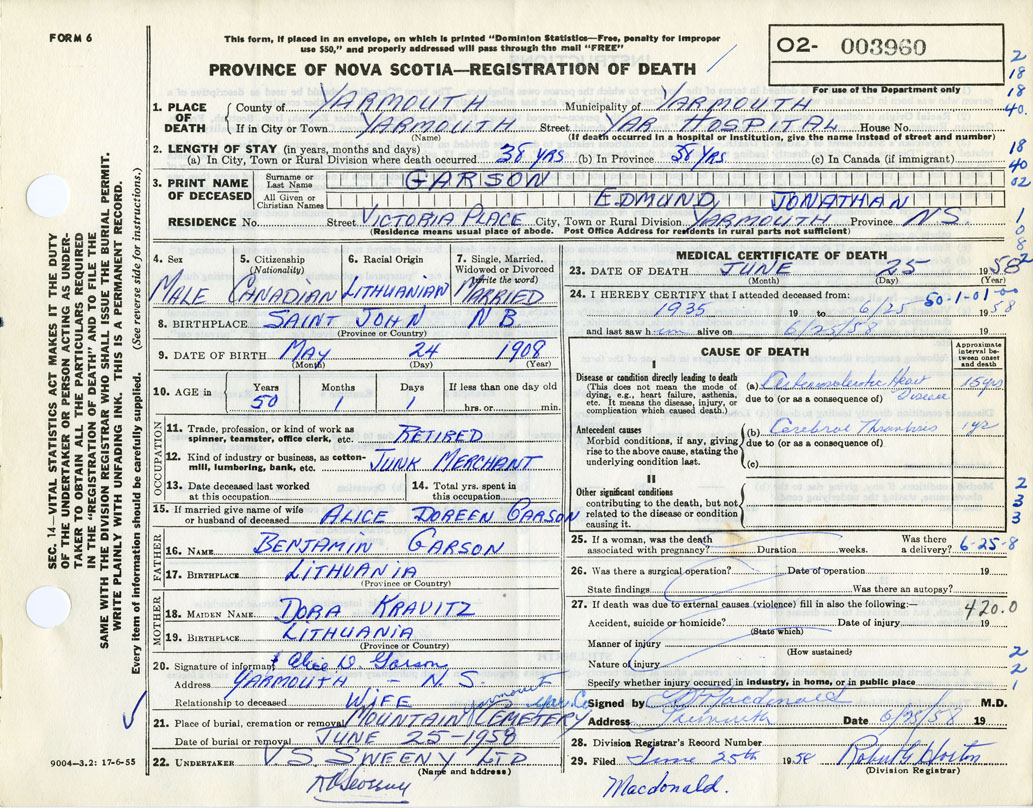 FORM 6
This form, if placed in an envelope, on which is printed "Dominion Statistics—Free, penalty for improper
use $50," and properly addressed will pass through the mail "FREE"
PROVINCE OF NOVA SCOTIA—REGISTRATION OF DEATH
02- 003960
For use of the Department only
1. PLACE OF DEATH
County of YARMOUTH Municipality of YARMOUTH
If in City or Town YARMOUTH Street YAR HOSPITAL House No.
(Name) (If death occurred in a hospital or institution, give name instead of street and number)
2. LENGTH OF STAY (in years, months and days)
(a) In City, Town or Rural Division where death occurred 38 YRS (b) In Province 38 YRS (c) In Canada (if immigrant)
3. PRINT NAME OF DECEASED
Surname or Last Name GARSON
All Given or Christian Names EDMUND JONATHAN
RESIDENCE No. Street VICTORIA PLACE City, Town or Rural Division YARMOUTH Province N.S.
(Residence means usual place of abode. Post Office Address for residents in rural parts not sufficient)
4. Sex MALE
5. Citizenship (Nationality) CANADIAN
6. Racial Origin LITHUANIAN
7. Single, Married, Widowed or Divorced (write the word) MARRIED
8. BIRTHPLACE SAINT JOHN N B
(Province or Country)
9. DATE OF BIRTH MAY 24 1908
(Month) (Day) (Year)
10. AGE in Years 50 Months 1 Days 1 If less than one day old hrs. or min.
OCCUPATION
11. Trade, profession, or kind of work as spinner, teamster, office clerk, etc. RETIRED
12. Kind of industry or business, as cotton-mill, lumbering, bank, etc. JUNK MERCHANT
13. Date deceased last worked at this occupation
14. Total yrs. spent in this occupation
15. If married give name of wife or husband of deceased ALICE DOREEN GARSON
FATHER
16. NAME BENJAMIN GARSON
17. BIRTHPLACE LITHUANIA
(Province or Country)
MOTHER
18. MAIDEN NAME DORA KRAVITZ
19. BIRTHPLACE LITHUANIA
(Province or Country)
20. Signature of informant Alice D. Garson
Address YARMOUTH - N.S.
Relationship to deceased WIFE
21. Place of burial, cremation or removal MOUNTAIN CEMETERY Yarmouth Yar. Co
Date of burial or removal JUNE 25-1958
22. UNDERTAKER V S SWEENY LTD
(Name and address)
MEDICAL CERTIFICATE OF DEATH
23. DATE OF DEATH JUNE 25 1958
(Month) (Day) (Year)
24. I HEREBY CERTIFY that I attended deceased from: 50-1-01-00
1935 19 to 6/25 1958
and last saw him alive on 6/25/58 19
CAUSE OF DEATH
Approximate interval between onset and death
I
Disease or condition directly leading to death
(This does not mean the mode of dying, e.g., heart failure, asthenia, etc. It means the disease, injury, or complication which caused death.)
(a) Arteriosclerotic Heart Disease 15 yrs
due to (or as a consequence of)
Antecedent causes
Morbid conditions, if any, giving rise to the above cause, stating the underlying condition last.
(b) Cerebral Thrombosis 1 yr
due to (or as a consequence of)
(c)
II
Other significant conditions
contributing to the death, but not related to the disease or condition causing it.
25. If a woman, was the death associated with pregnancy? Duration weeks. Was there a delivery? 6-25-8
26. Was there a surgical operation? Date of operation 19
State findings Was there an autopsy?
27. If death was due to external causes (violence) fill in also the following:— 420.0
Accident, suicide or homicide? Date of injury 19
(State which)
Manner of injury
(How sustained)
Nature of injury
Specify whether injury occurred in industry, in home, or in public place
Signed by Macdonald M.D.
Address Date 6/25/58 19
28. Division Registrar's Record Number
29. Filed June 25th 1958 Robert G Horton
(Division Registrar)
Macdonald.
9004-3.2: 17-6-55
SEC. 14—VITAL STATISTICS ACT MAKES IT THE DUTY
OF THE UNDERTAKER OR PERSON ACTING AS UNDER-
TAKER TO OBTAIN ALL THE PARTICULARS REQUIRED
IN THE "REGISTRATION OF DEATH" AND TO FILE THE
SAME WITH THE DIVISION REGISTRAR WHO SHALL ISSUE THE BURIAL PERMIT.
WRITE PLAINLY WITH UNFADING INK. THIS IS A PERMANENT RECORD.
Every item of information should be carefully supplied. (See reverse side for instructions.)
2
18
18
40.
18
40
02
1
0
8
2
2
3
3
2
2
1